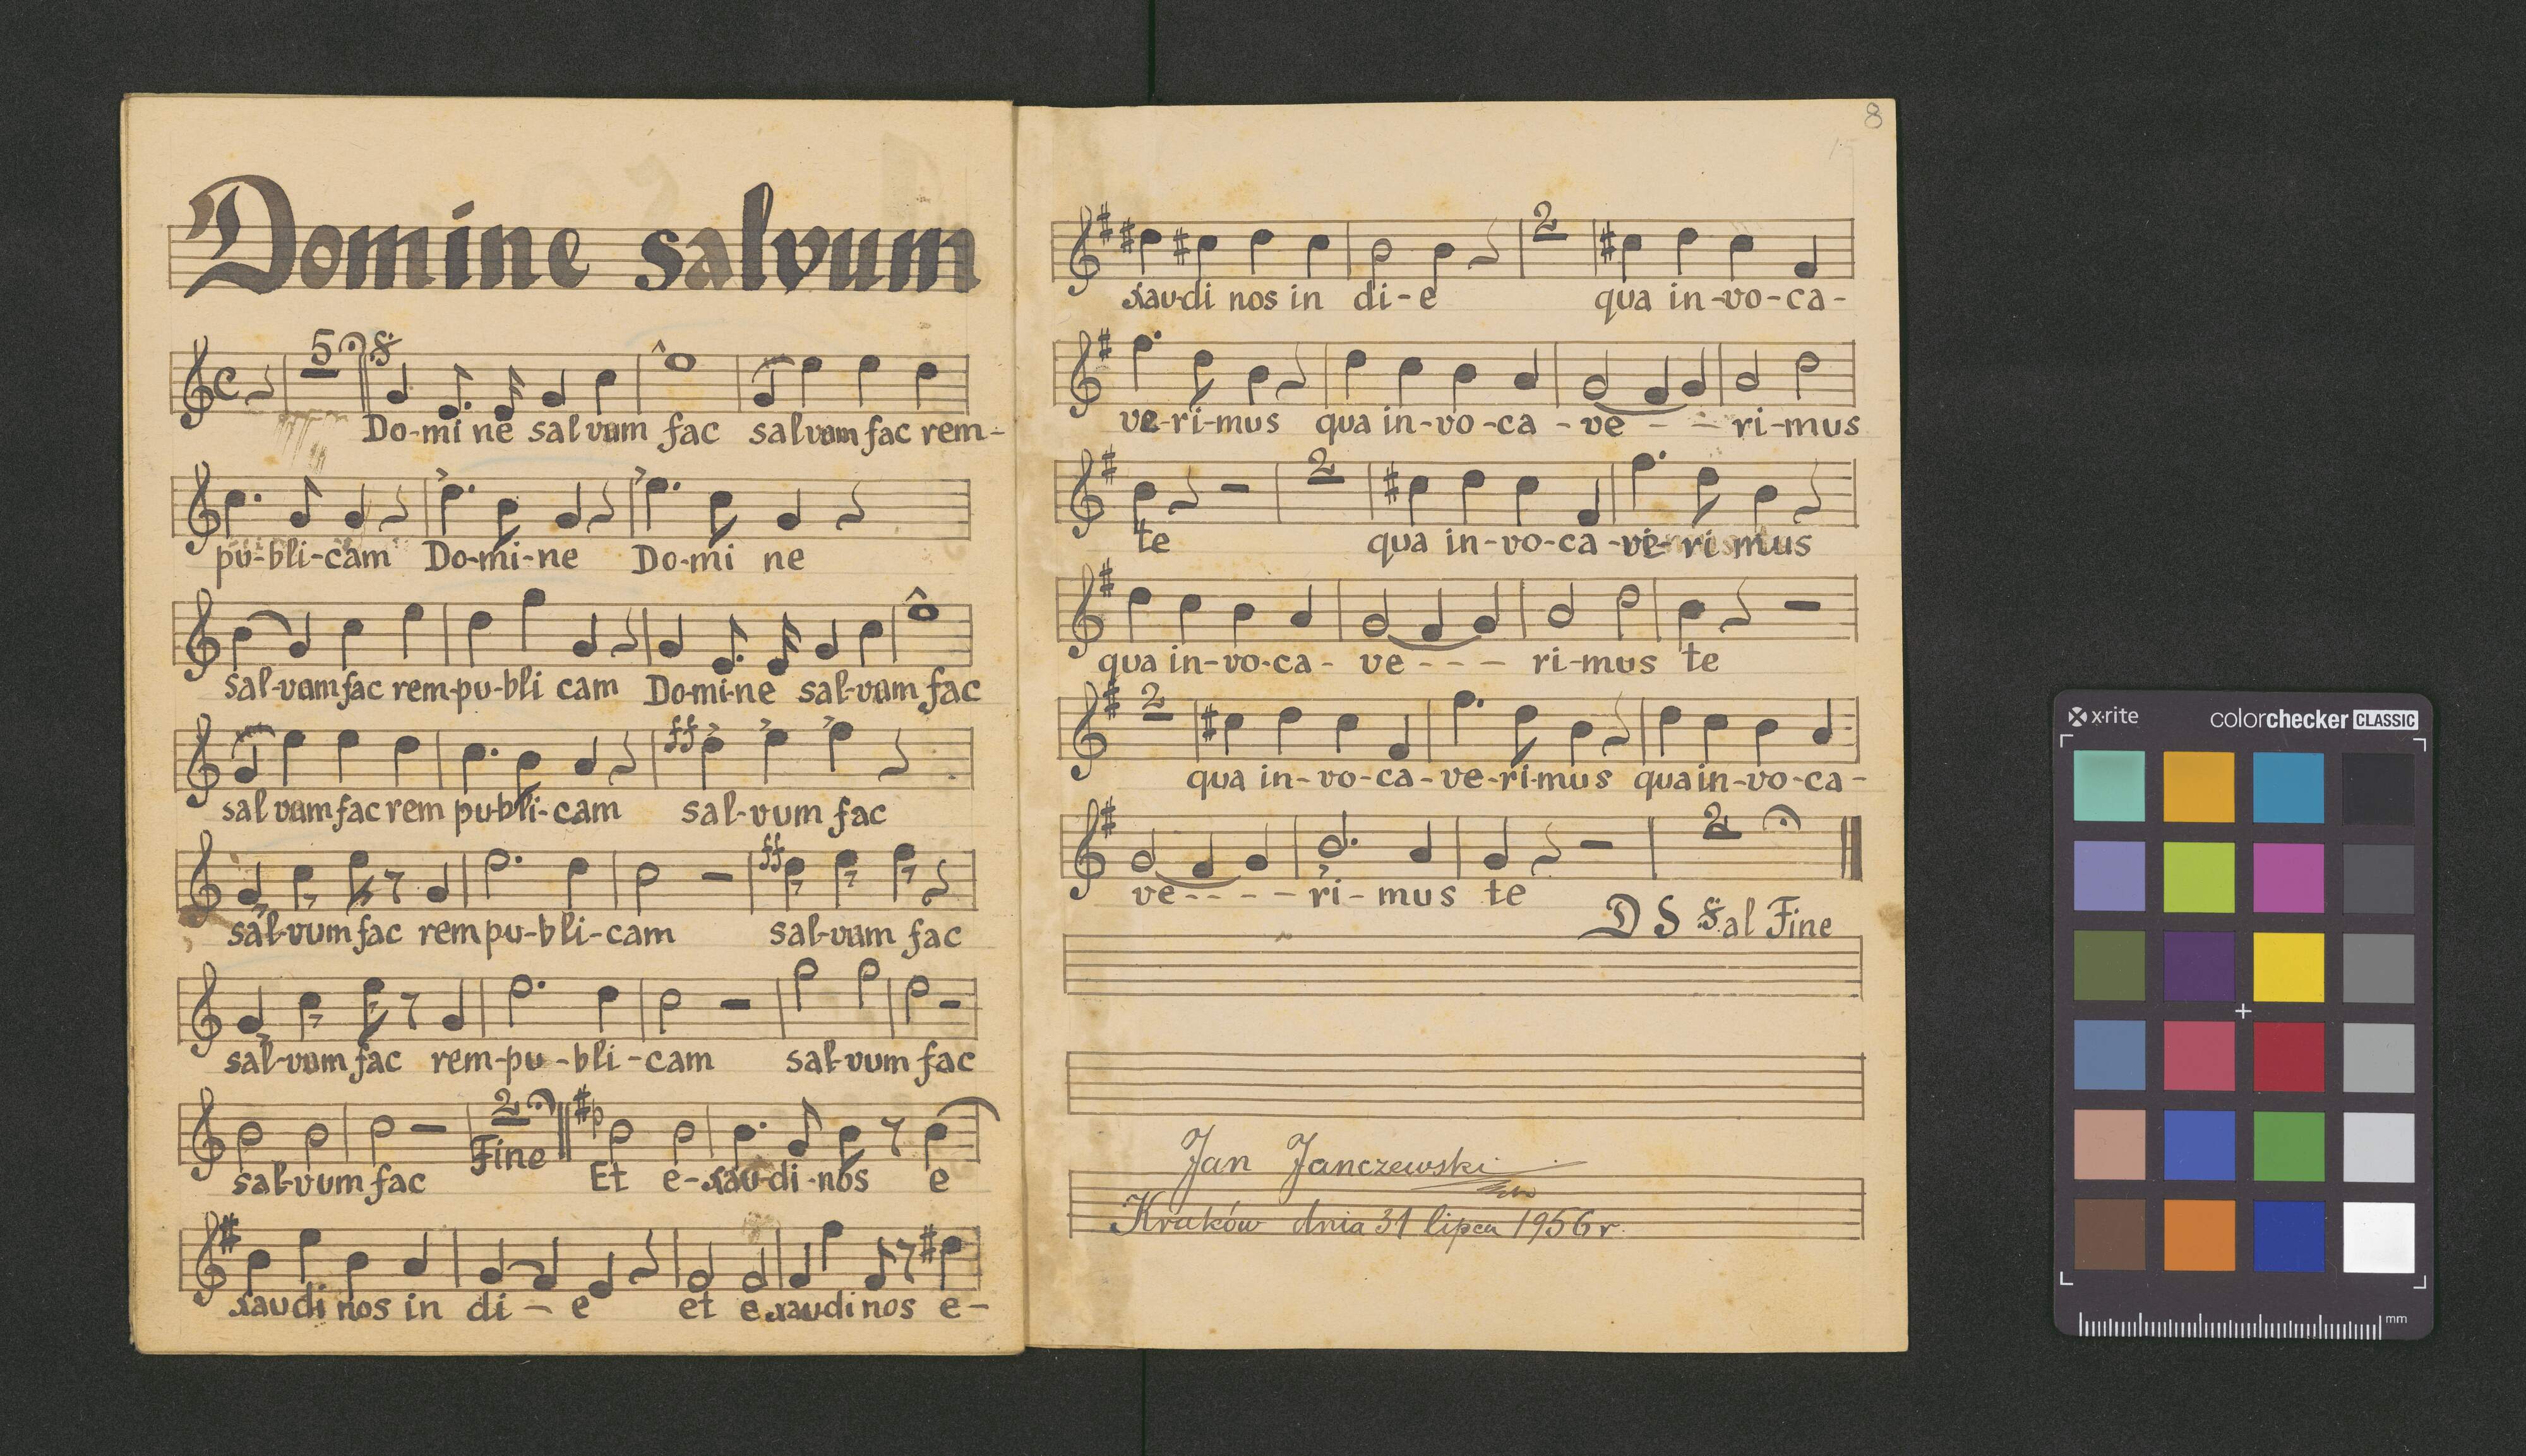 Domine salvum
5
Do-mi ne sal vum fac salvum fac rem-
pu-bli-cam Do-mi-ne Do-mi ne
sal-vum fac rem-pu-bli cam Do-mi-ne sal-vum fac
ff
sal vum fac rem pu-bli-cam sal-vum fac
ff
sal-vum fac rem pu-bli-cam sal-vum fac
sal-vum fac rem-pu-bli-cam sal-vum fac
2
Fine p
sal-vum fac Et e-xau-di-nos e
xau di nos in di-e et e xaudi nos e-
8
2
xau-di nos in di-e qua in-vo-ca-
ve-ri-mus qua in-vo-ca-ve - - ri-mus
2
te qua in-vo-ca-ve-ri mus
qua in-vo-ca- ve - - - ri-mus te
2
qua in-vo-ca-ve-ri-mus qua in-vo-ca-
2
ve - - - - ri-mus te
D S 𝄋 al Fine
Jan Janczewski
Kraków dnia 31 lipca 1956 r.
x·rite colorchecker CLASSIC
mm